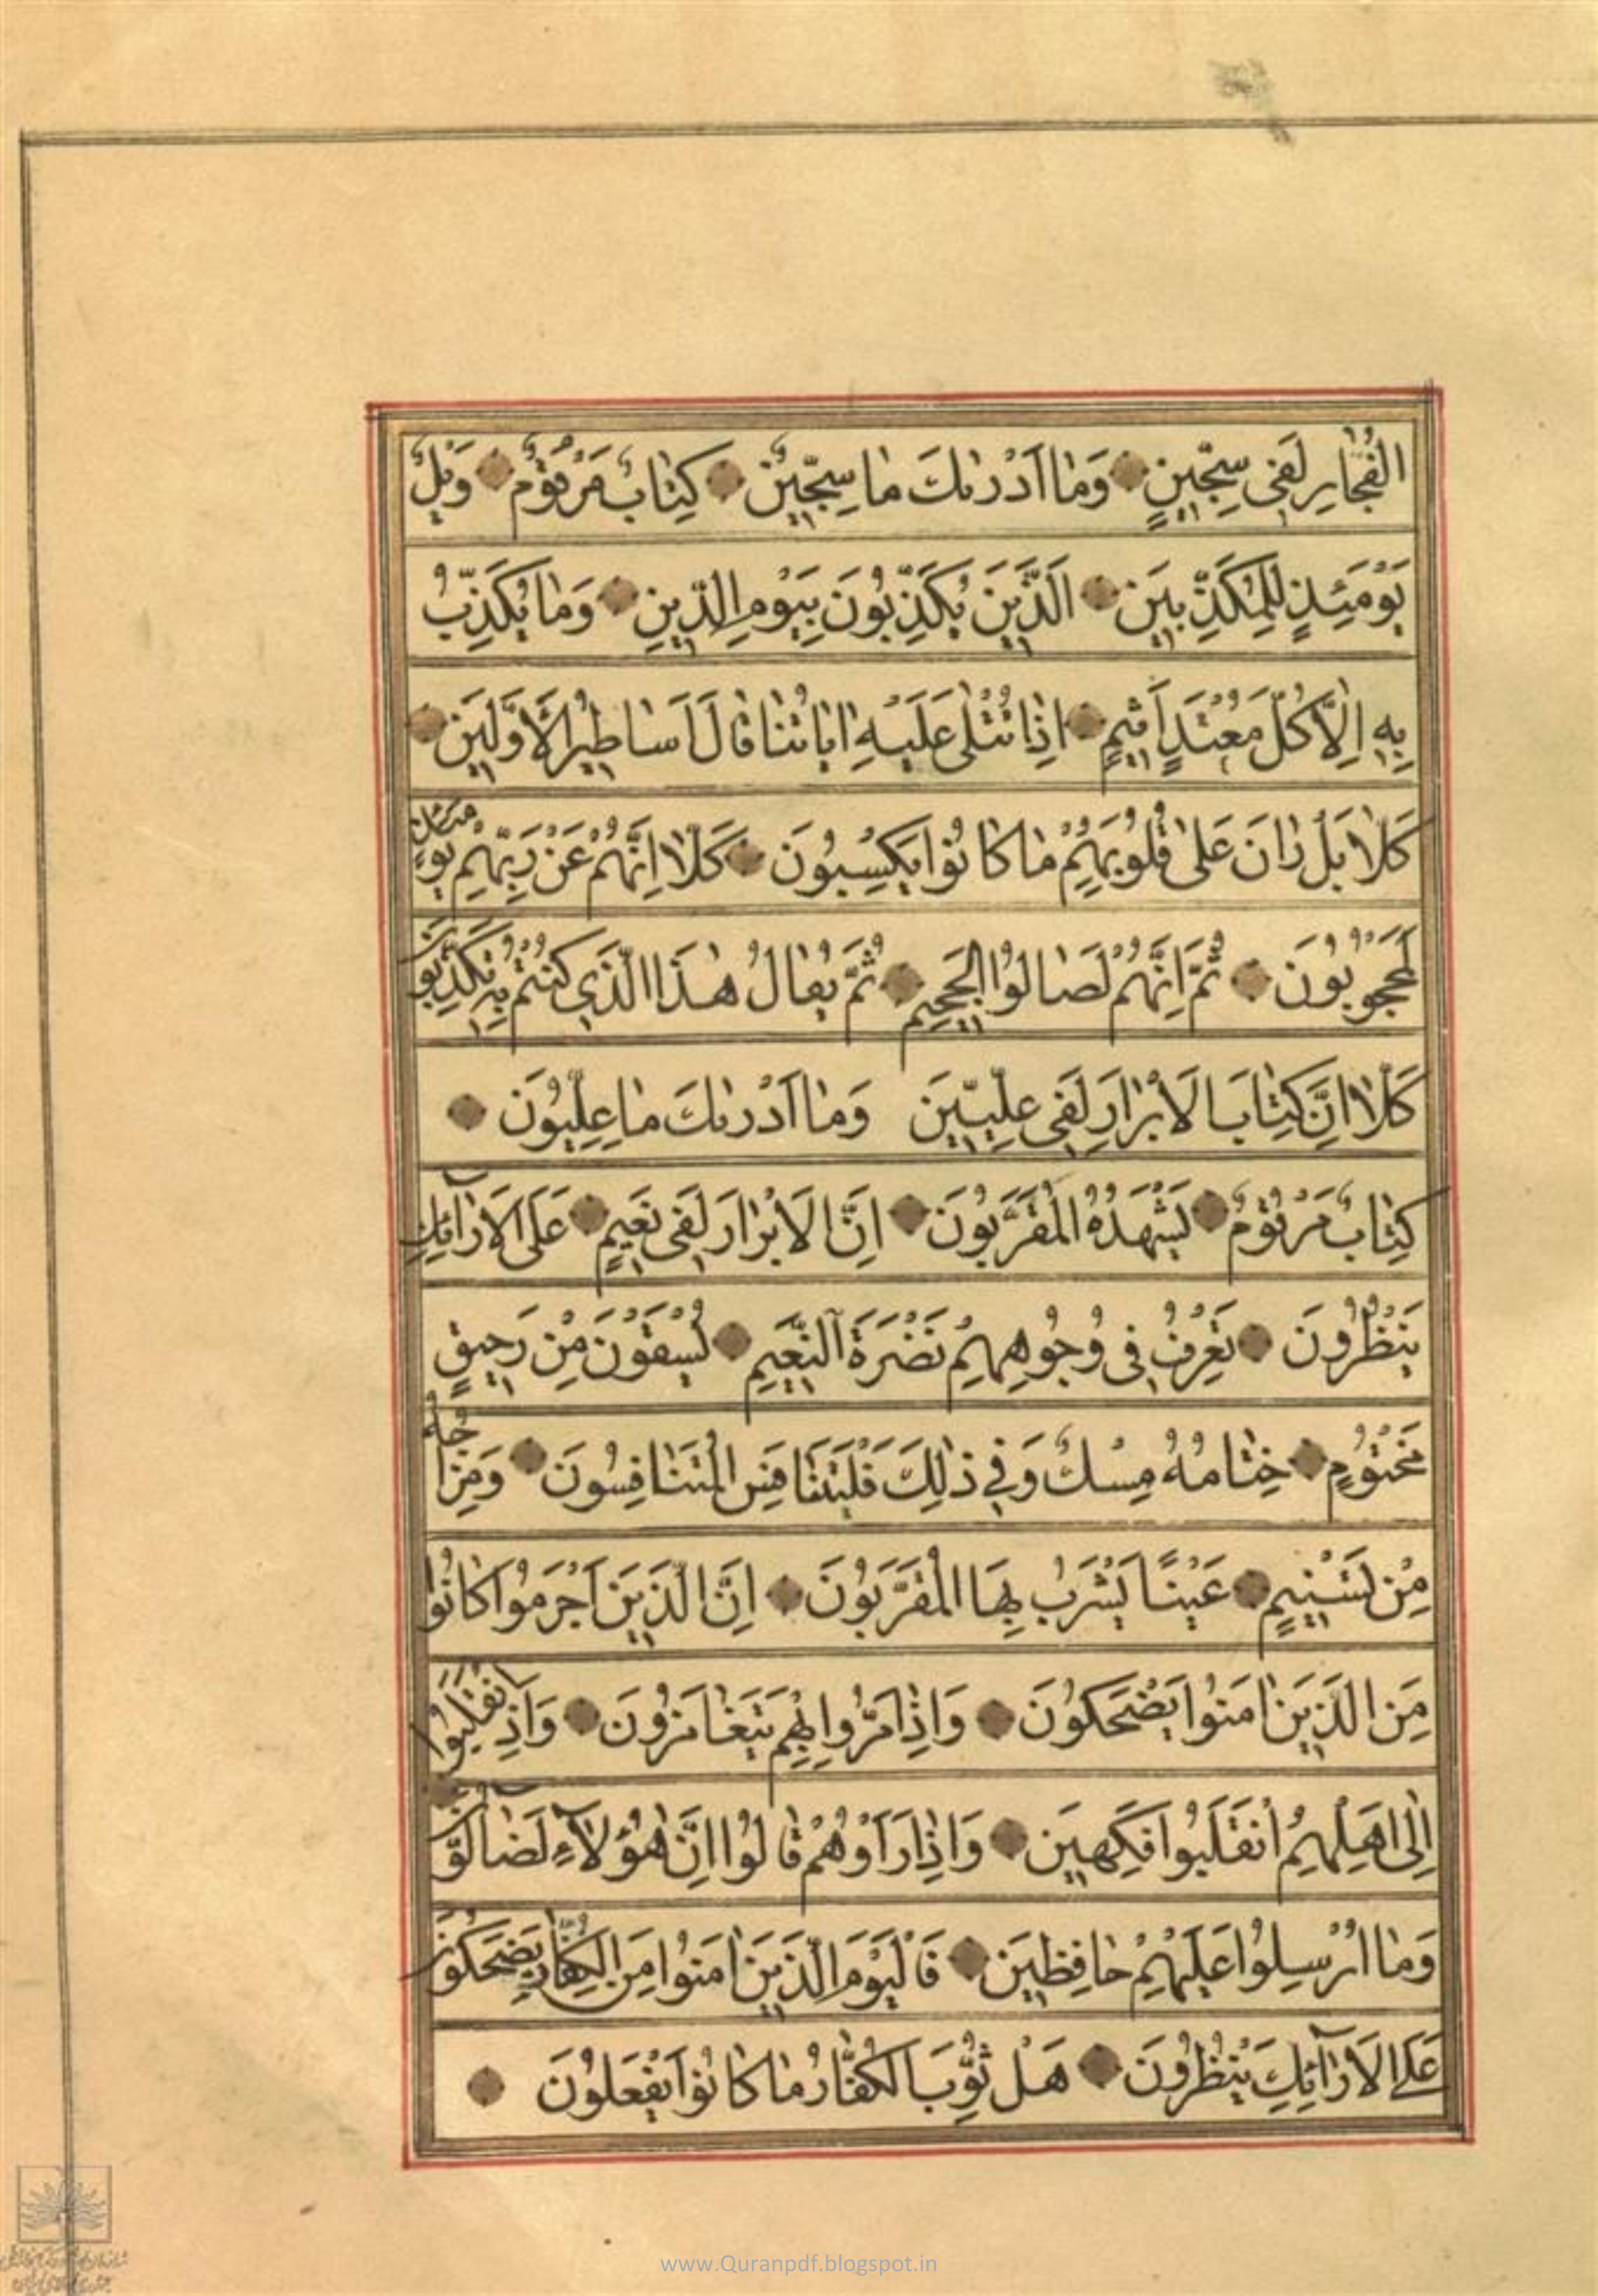 الفُجّٰارِ لَفی سِجّینٍ وَمٰا اَدْرٰىكَ مٰا سِجّینٌ كِتٰابٌ مَرْقُومٌ وَیْلٌ
یَوْمَئِذٍ لِلْمُكَذِّبینَ اَلَّذینَ یُكَذِّبُونَ بِیَوْمِ الدّینِ وَمٰا یُكَذِّبُ
بِهِ اِلّاٰ كُلُّ مُعْتَدٍ اَثیمٍ اِذٰا تُتْلٰى عَلَیْهِ اٰیٰاتُنٰا قٰالَ اَسٰاطیرُ الْاَوَّلینَ
كَلّاٰ بَلْ رٰانَ عَلىٰ قُلُوبِهِمْ مٰا كٰانُوا یَكْسِبُونَ كَلّاٰ اِنَّهُمْ عَنْ رَبِّهِمْ یَوْمَئِذٍ
لَمَحْجُوبُونَ ثُمَّ اِنَّهُمْ لَصٰالُوا الْجَحیمِ ثُمَّ یُقٰالُ هٰذَا الَّذی كُنْتُمْ بِهِ تُكَذِّبُونَ
كَلّاٰ اِنَّ كِتٰابَ الْاَبْرٰارِ لَفی عِلِّیّینَ وَمٰا اَدْرٰىكَ مٰا عِلِّیُّونَ
كِتٰابٌ مَرْقُومٌ یَشْهَدُهُ الْمُقَرَّبُونَ اِنَّ الْاَبْرٰارَ لَفی نَعیمٍ عَلَى الْاَرٰآئِكِ
یَنْظُرُونَ تَعْرِفُ فی وُجُوهِهِمْ نَضْرَةَ النَّعیمِ یُسْقَوْنَ مِنْ رَحیقٍ
مَخْتُومٍ خِتٰامُهُ مِسْكٌ وَفی ذٰلِكَ فَلْیَتَنٰافَسِ الْمُتَنٰافِسُونَ وَمِزٰاجُهُ
مِنْ تَسْنیمٍ عَیْنًا یَشْرَبُ بِهَا الْمُقَرَّبُونَ اِنَّ الَّذینَ اَجْرَمُوا كٰانُوا
مِنَ الَّذینَ اٰمَنُوا یَضْحَكُونَ وَاِذٰا مَرُّوا بِهِمْ یَتَغٰامَزُونَ وَاِذَا انْقَلَبُوا
اِلىٰ اَهْلِهِمُ انْقَلَبُوا فَكِهینَ وَاِذٰا رَاَوْهُمْ قٰالُوا اِنَّ هٰؤُلٰآءِ لَضٰآلُّونَ
وَمٰا اُرْسِلُوا عَلَیْهِمْ حٰافِظینَ فَالْیَوْمَ الَّذینَ اٰمَنُوا مِنَ الْكُفّٰارِ یَضْحَكُونَ
عَلَى الْاَرٰآئِكِ یَنْظُرُونَ هَلْ ثُوِّبَ الْكُفّٰارُ مٰا كٰانُوا یَفْعَلُونَ
www.Quranpdf.blogspot.in